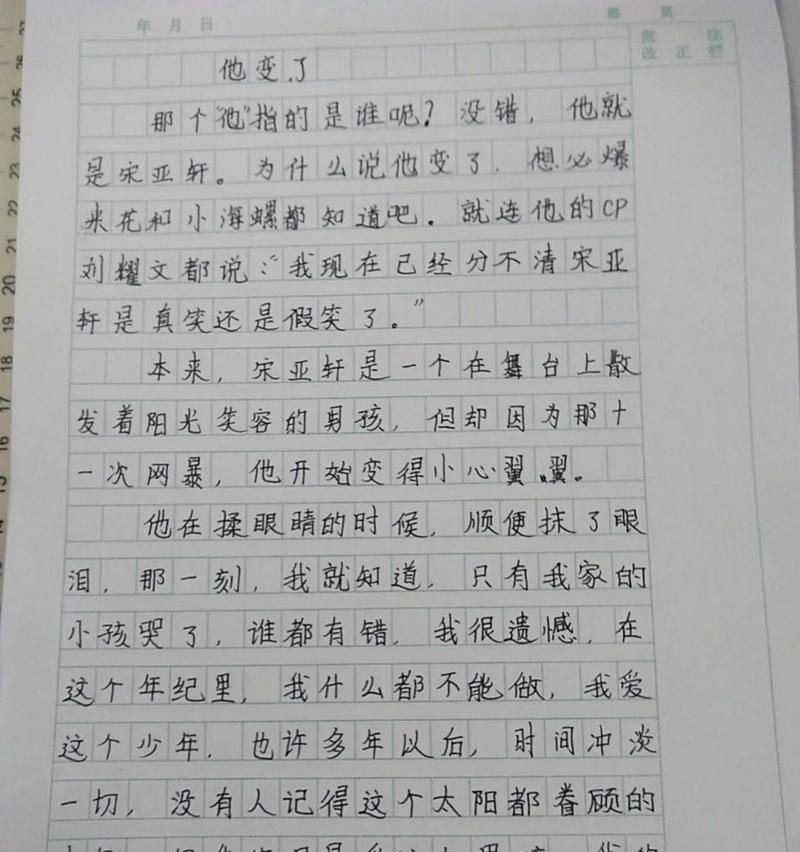 年 月 日
第 页
批 注
改 正 栏
他变了
那个“他”指的是谁呢？没错，他就
是宋亚轩。为什么说他变了，想必爆
米花和小海螺都知道吧。就连他的CP
刘耀文都说：“我现在已经分不清宋亚
轩是真笑还是假笑了。”
本来，宋亚轩是一个在舞台上散
发着阳光笑容的男孩，但却因为那十
一次网暴，他开始变得小心翼翼。
他在揉眼睛的时候，顺便抹了眼
泪，那一刻，我就知道，只有我家的
小孩哭了，谁都有错，我很遗憾，在
这个年纪里，我什么都不能做，我爱
这个少年，也许多年以后，时间冲淡
一切，没有人记得这个太阳都眷顾的
27
26
25
24
23
22
21
20
19
18
17
16
15
14